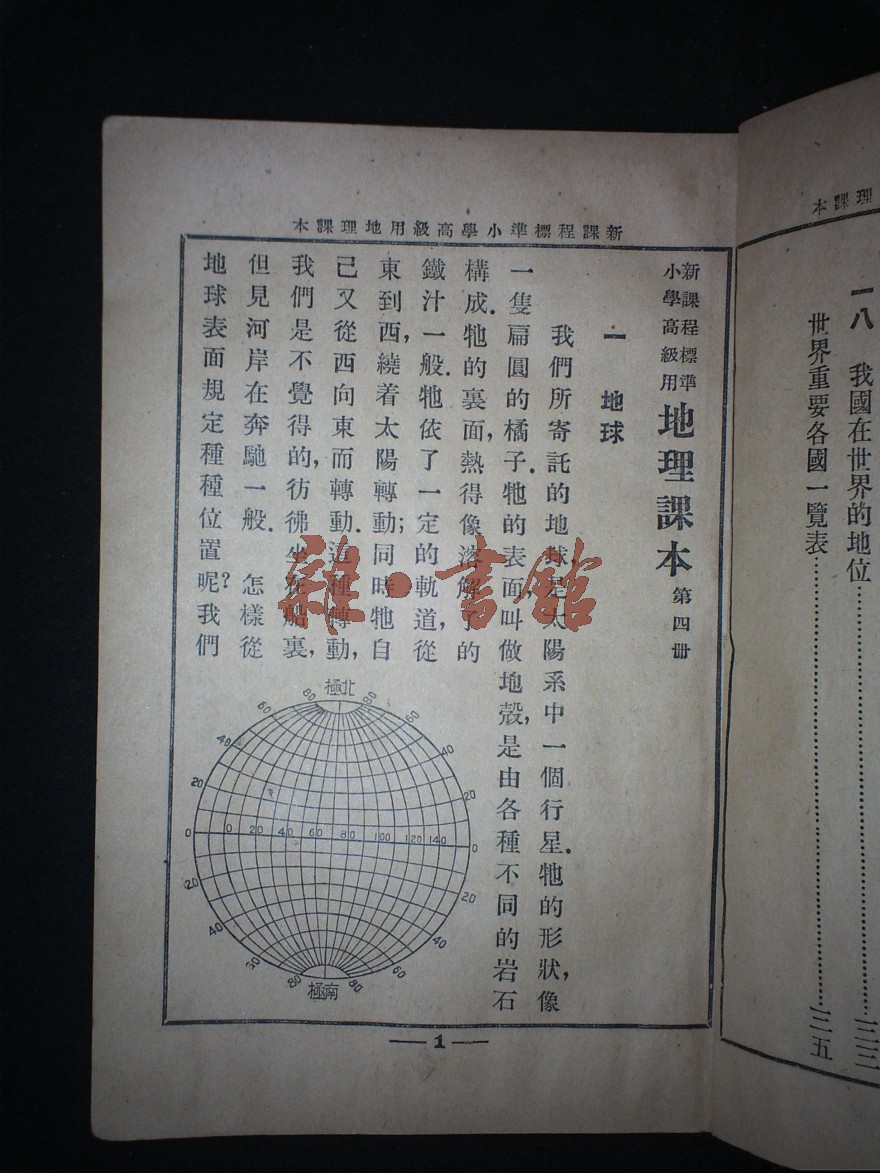 理課本
一八 我國在世界的地位……………三三
世界重要各國一覽表……………三五
新課程標準小學高級用地理課本
新課程標準
小學高級用
地理課本 第四册
一 地球
我們所寄託的地球,是太陽系中一個行星.牠的形狀,像
一隻扁圓的橘子.牠的表面,叫做地殼,是由各種不同的岩石
構成.牠的裏面,熱得像溶解了的
鐵汁一般.牠依了一定的軌道,從
東到西,繞着太陽轉動;同時牠自
己又從西向東而轉動.這種轉動,
我們是不覺得的,彷彿坐在船裏,
但見河岸在奔馳一般. 怎樣從
地球表面規定種種位置呢?我們
北極
80 80
60 60
40 40
20 20
0 0 20 40 60 80 100 120 140 0
20 20
40 40
30 60
80 80
南極
雜·書館
1